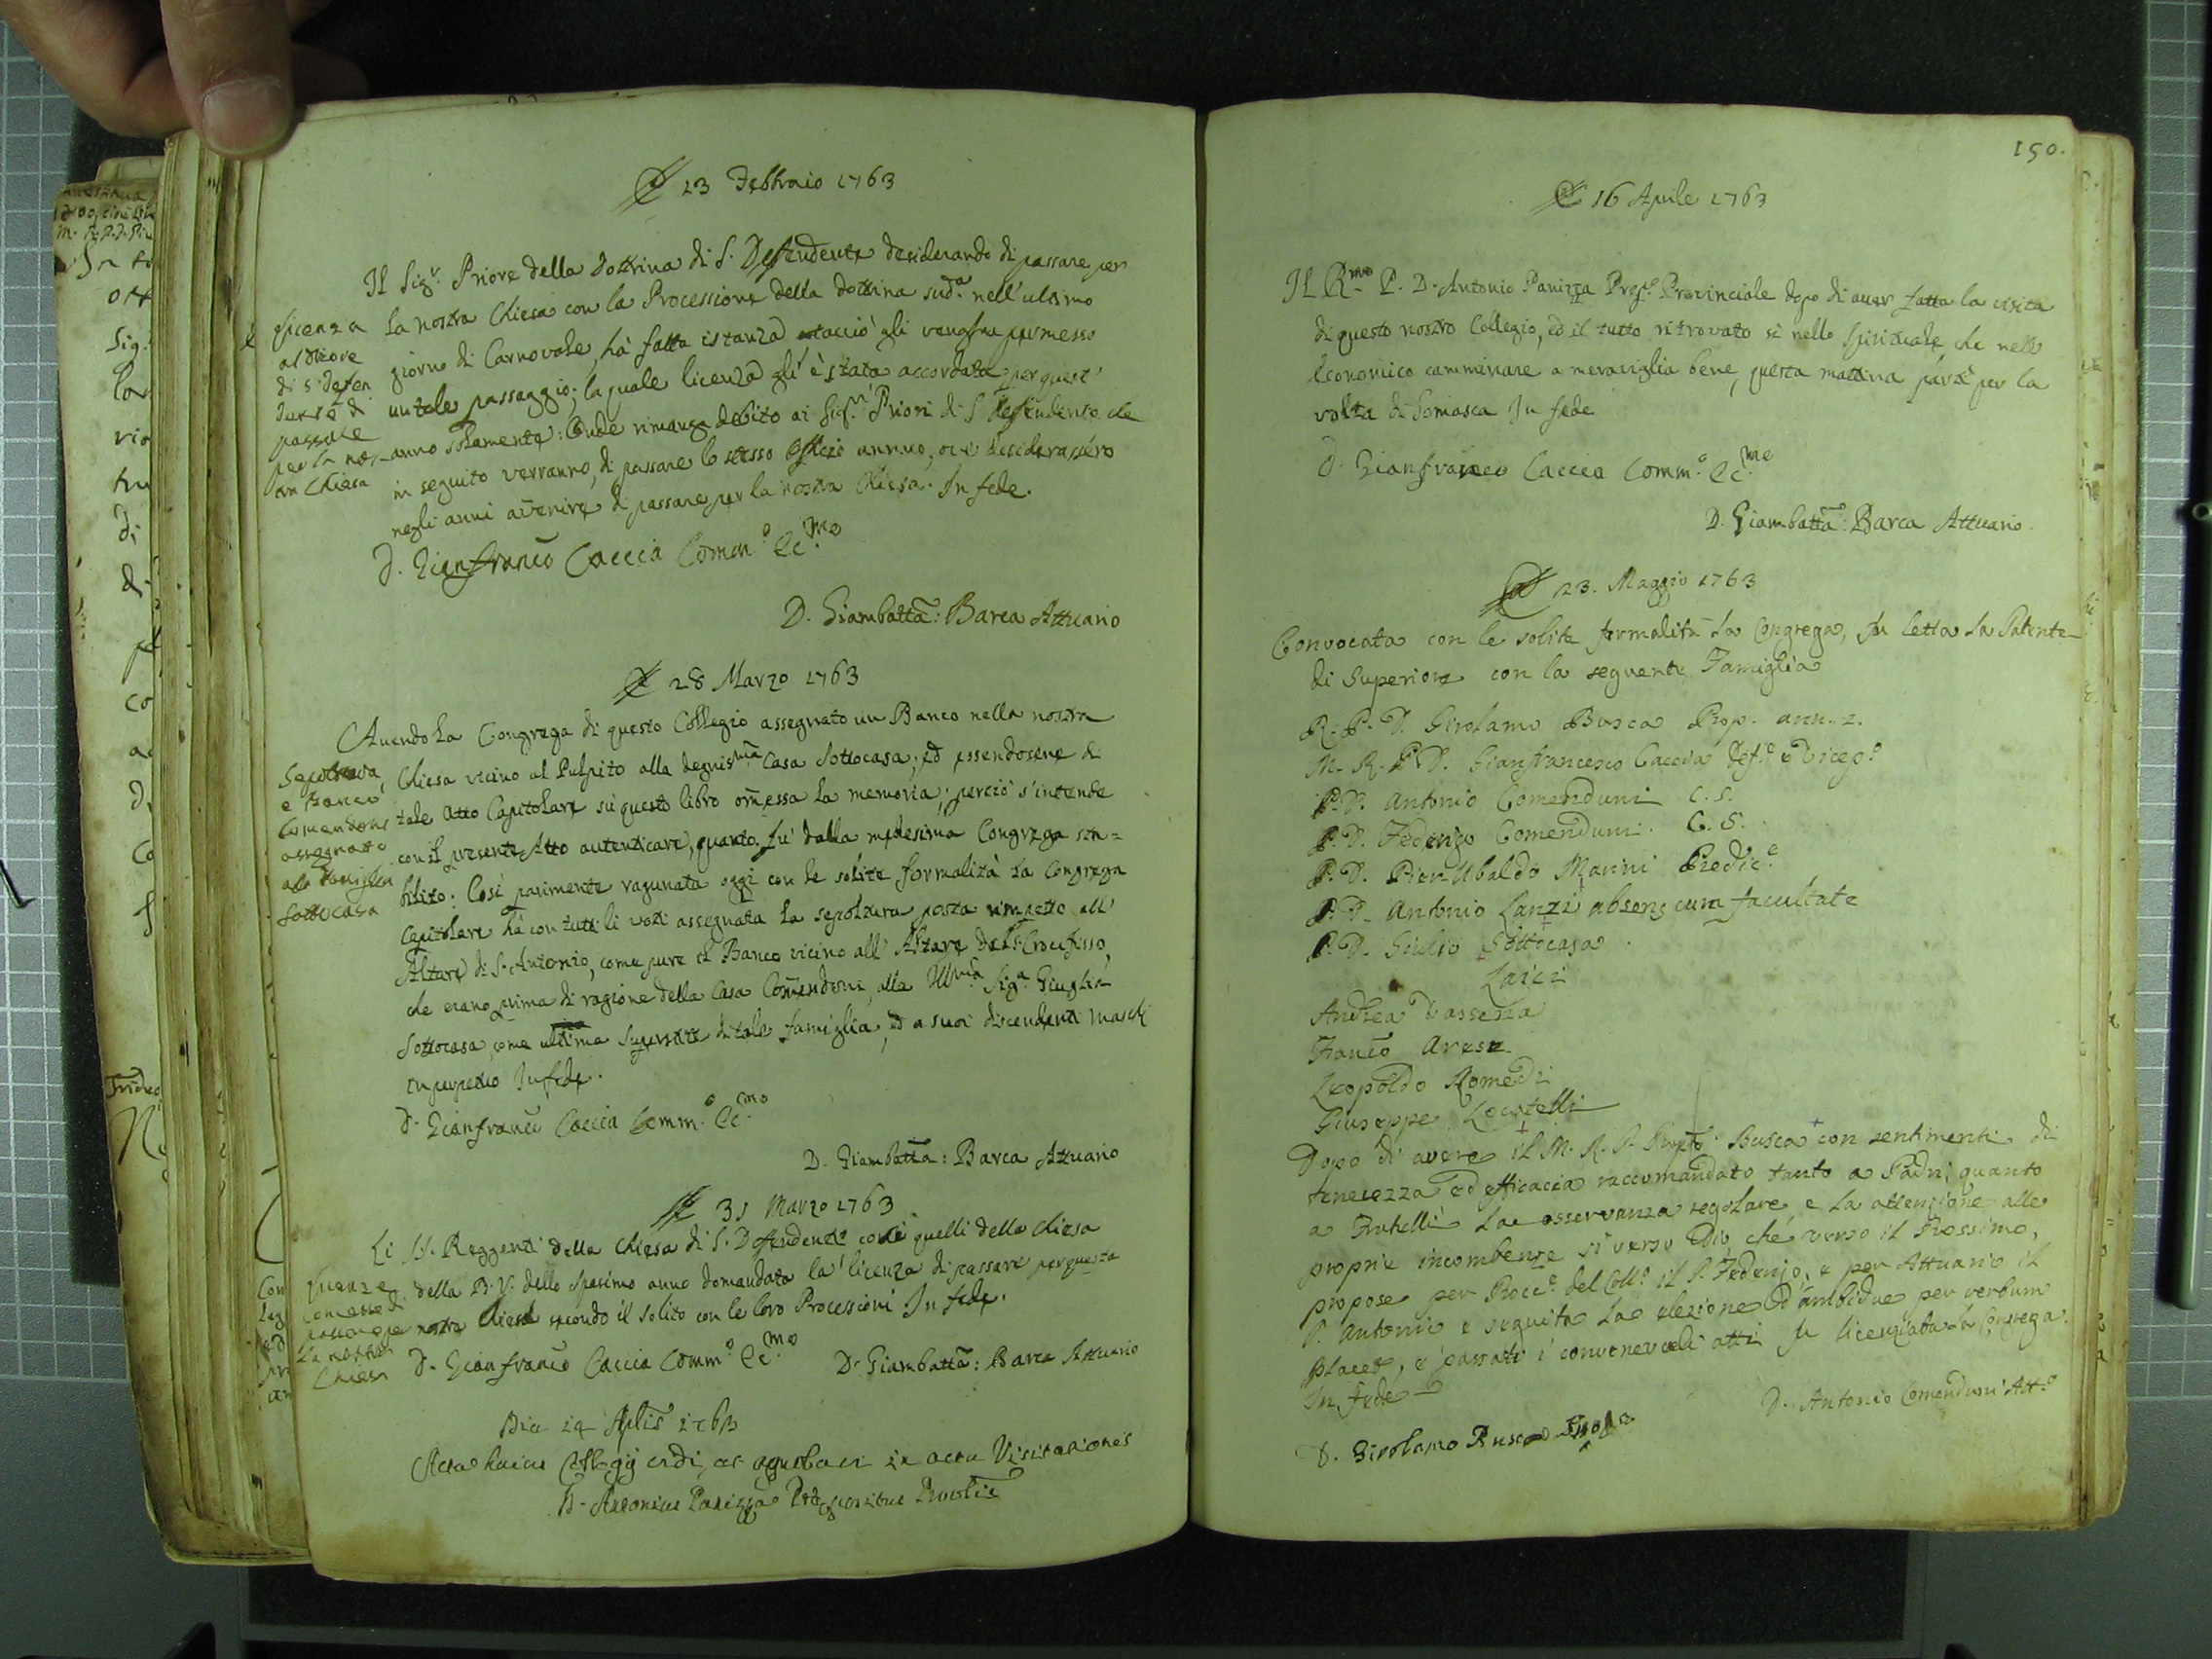 23 Febbraio 1763
Il Sig.r Priore della Dottrina di S. Defendente desiderando di passare per
la nostra Chiesa con la Processione della dottrina sud.a nell'ultimo
giorno di Carnovale, hà fatta istanza, acciò gli venghi permesso
un tale passaggio; la quale licenza gli è stata accordata per quest'
anno solamente: Onde rimanga debito ai Sig.ri Priori di S. Defendente, che
in seguito verranno, di passare lo stesso officio annuo, se desiderassero
negli anni avenire di passare per la nostra Chiesa. In fede.
licenza
al Priore
di S. Defen
dente di
passare
per la nos-
tra Chiesa
D. Gianfranco Caccia Comm.o Ec.mo
D. Giambatta: Barca Attuario
28 Marzo 1763
Avendo la Congrega di questo Collegio assegnato un Banco nella nostra
Chiesa vicino al Pulpito alla degnis.ma Casa Sottocasa; ed essendosene di
tale atto Capitolare sù questo libro omessa la memoria; perciò s'intende
con il presente Atto autenticare, quanto fù dalla medesima Congrega sta=
bilito: Così parimente ragunata oggi con le solite formalità la Congrega
Capitolare hà con tutti li voti assegnata la sepoltura posta rimpetto all'
Altare di S. Antonio, come pure il Banco vicino all'Altare del S. Crocifisso,
che erano prima di ragione della Casa Comendoni, alla Ill.ma Sig.a Giuglia
Sottocasa, come ultima superstite di tale famiglia, ed a suoi discendenti maschi
in perpetuo In fede.
Sepoltura,
e Banco
Comendoni
assegnato
alla famiglia
Sottocasa
D. Gianfranco Caccia Comm.o Ec.mo
D. Giambatta: Barca Attuario
31 Marzo 1763
Li SS. Reggenti della Chiesa di S. Defendente come quelli della Chiesa
della B. V. dello Spasimo anno domandata la licenza di passare per questa
nostra Chiesa secondo il solito con le loro Processioni In fede.
licenze
concesse di
passare per
la nostra
Chiesa
D. Gianfranco Caccia Comm.o Ec.mo
D. Giambatta: Barca Attuario
Die 14 Aplis 1763
Acta huius Collegij vidi, ac approbavi in actu Visitationis
D. Antonius Panizza Praepositus Provlis
150.
16 Aprile 1763
Il R.mo P. D. Antonio Panizza Prep.o Provinciale dopo di aver fatta la visita
di questo nostro Collegio, ed il tutto ritrovato sì nello spirituale, che nell'
Economico camminare a meraviglia bene, questa mattina partì per la
volta di Somasca In fede
D. Gianfranco Caccia Comm.o Ec.mo
D. Giambatta: Barca Attuario.
23. Maggio 1763
Convocata con le solite formalità la Congrega, fu letta la Patente
di Superiore con la seguente Famiglia
R. P. D. Girolamo Busca Prop. ann. 2.
M. R. P. D. Gianfrancesco Caccia Def.e e Vicep.o
P. D. Antonio Comenduni C. S.
P. D. Federigo Comenduni. C. S.
P. D. Pier-Ubaldo Manni Predic.e
P. D. Antonio Lanzi absens cum facultate
P. D. Giulio Sottocasa.
Laici
Andrea Vassena
Franco Arese
Leopoldo Romedi
Giuseppe Locatelli
Dopo di avere il M. R. P. Prep.to Busca con sentimenti di
tenerezza ed efficacia raccomandato tanto a Padri, quanto
a Fratelli la osservanza regolare, e la attenzione alle
proprie incombenze sì verso Dio, che verso il Prossimo,
propose per Proc.e del Coll.o il P. Federigo, e per Attuario il
P. Antonio e seguita la elezione d'ambidue per verbum
placet, e passati i convenevoli atti fu licenziata la Congrega.
In fede
D. Antonio Comenduni Att.o
D. Girolamo Busca Prop.to